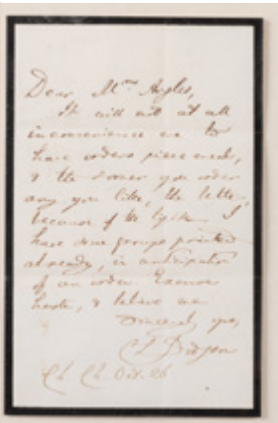 Dear Mrs Angles,
It will not at all
inconvenience me to
have orders piecemeal,
& the sooner you order
any you like, the better,
because of the light. I
have some groups printed
already, in anticipation
of an order. Excuse
haste, & believe me
Sincerely yrs,
C L Dodgson
Ch. Ch. Oct. 26